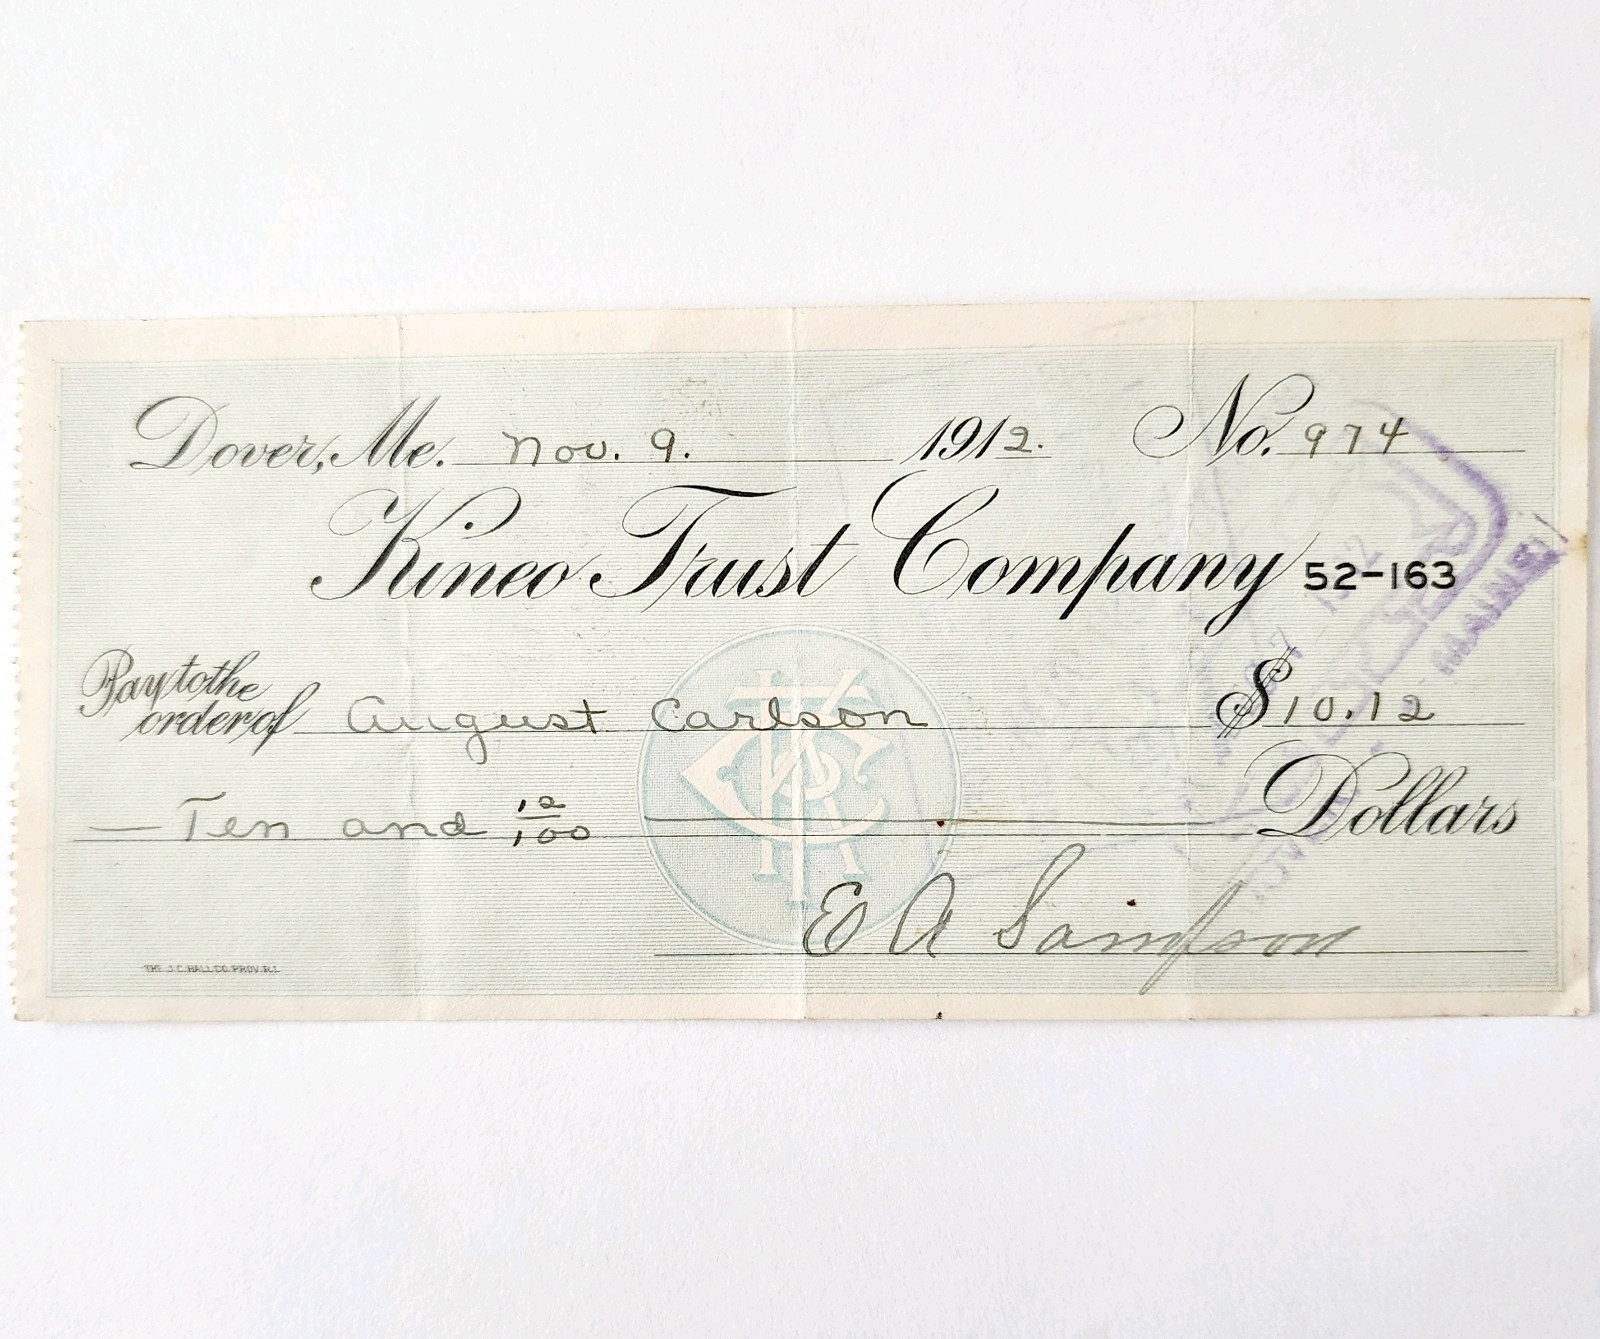 Dover, Me. Nov. 9. 1912. No. 974
Kineo Trust Company 52-163
Pay to the
order of August Carlson $10.12
— Ten and 12/100 Dollars
E A Sampson
THE J.C. HALL CO. PROV. R.I.
MAIN ST